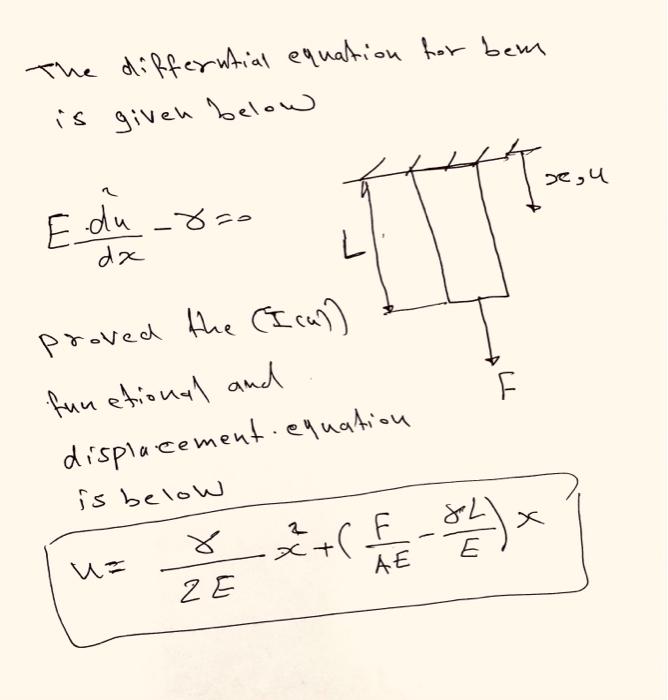 The differntial equation for bem
is given below
E d²u/dx - γ = 0
x, u
L
proved the (I(u))
functional and
F
displacement. equation
is below
u = γ/2E x² + (F/AE - γL/E) x